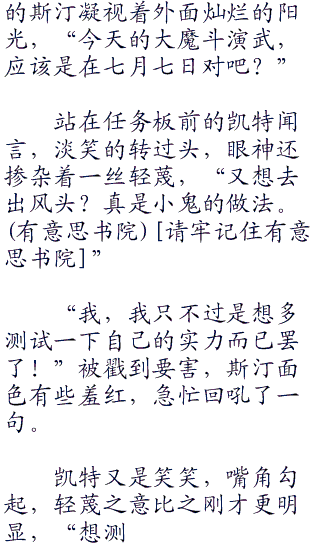 的斯汀凝视着外面灿烂的阳
光，“今天的大魔斗演武，
应该是在七月七日对吧？”
站在任务板前的凯特闻
言，淡笑的转过头，眼神还
掺杂着一丝轻蔑，“又想去
出风头？真是小鬼的做法。
(有意思书院)[请牢记住有意
思书院]”
“我，我只不过是想多
测试一下自己的实力而已罢
了！”被戳到要害，斯汀面
色有些羞红，急忙回吼了一
句。
凯特又是笑笑，嘴角勾
起，轻蔑之意比之刚才更明
显，“想测